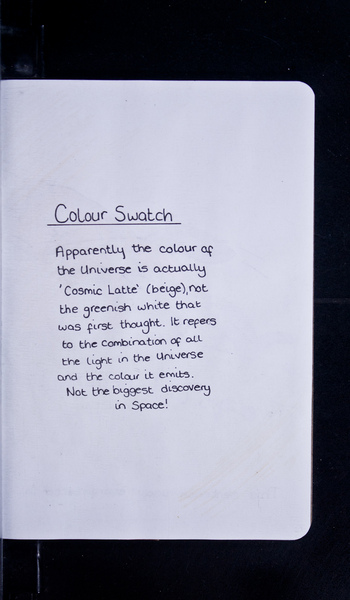 Colour Swatch
Apparently the colour of
the Universe is actually
'Cosmic Latte' (beige), not
the greenish white that
was first thought. It refers
to the combination of all
the light in the Universe
and the colour it emits.
Not the biggest discovery
in Space!